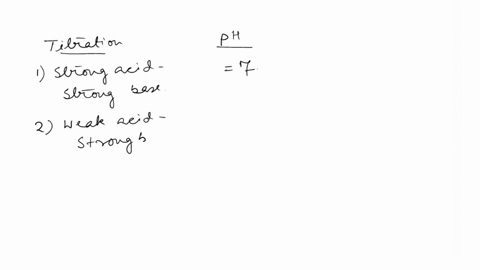 Titration
pH
1) Strong acid-
strong base
= 7
2) Weak acid-
Strong b